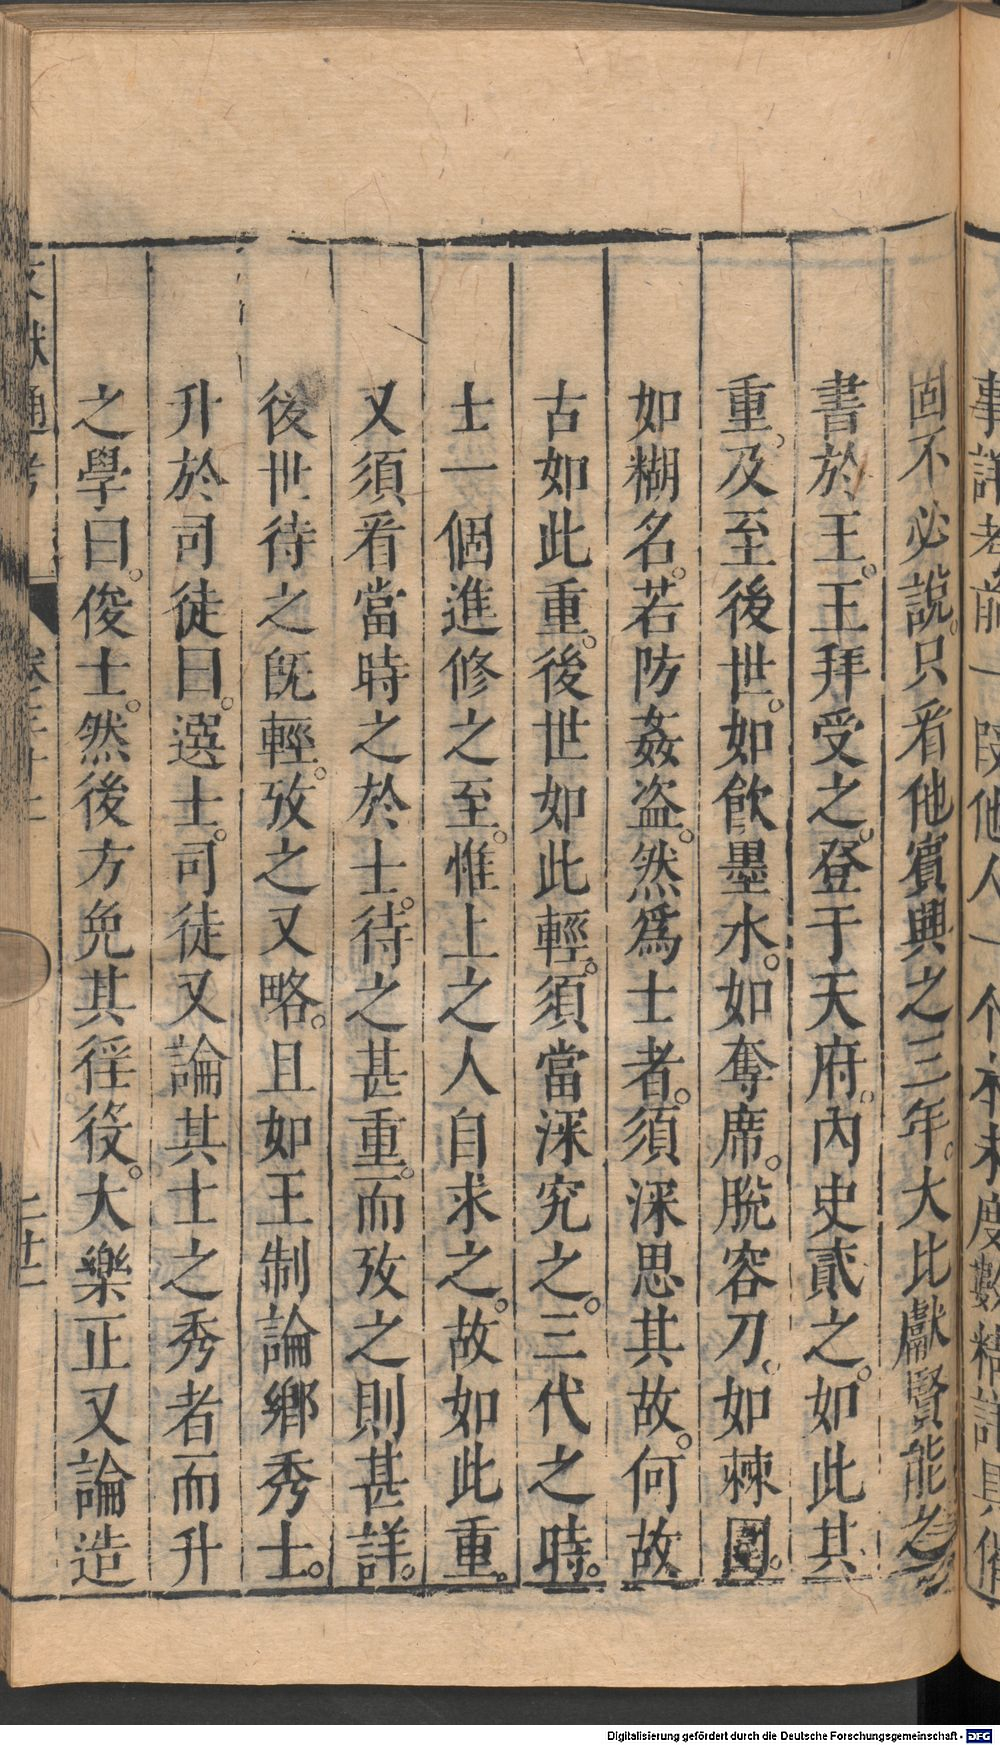 固不必說。只看他賓興之三年。大比獻賢能之
書於王。王拜受之。登于天府。內史貳之。如此其
重。及至後世。如飲墨水。如奪席。脫容刀。如棘圍。
如糊名。若防姦盗。然爲士者。須深思其故。何故
古如此重。後世如此輕。須當深究之。三代之時。
士一個進修之至。惟上之人自求之。故如此重。
又須看當時之於士。待之甚重。而攷之則甚詳。
後世待之旣輕。攷之又略。且如王制論鄉秀士。
升於司徒曰。選士。司徒又論其士之秀者而升
之學曰。俊士。然後方免其徭役。大樂正又論造
文獻通考
Digitalisierung gefördert durch die Deutsche Forschungsgemeinschaft - DFG